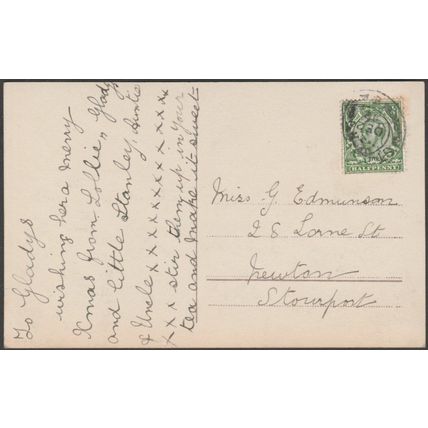 To Gladys
wishing her a merry
Xmas from Lollie, Glady
and little Stanley, Auntie
& Uncle x x x x x x x x x
x x x stir them up in your
tea and make it sweet
Miss G. Edmunson
28 Lorne St
Newton
Stourport
HALFPENNY